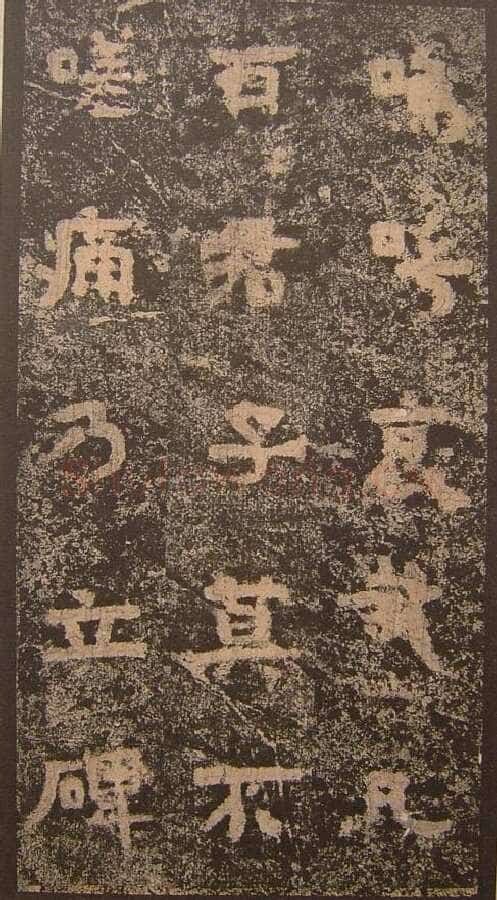 嗚呼哀哉凡
百君子莫不
嗟痛乃立碑